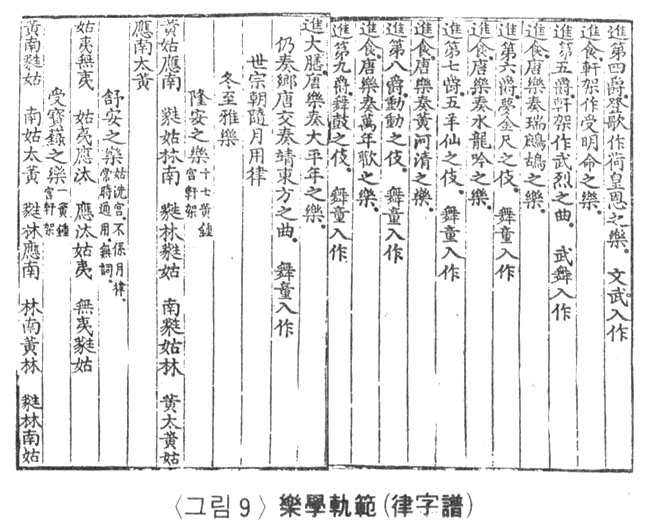 進第四爵登歌作荷皇恩之樂。 文武入作
進食軒架作受明命之樂。
進第五爵軒架作武烈之曲。 武舞入作
進食唐樂奏瑞鷓鴣之樂。
進第六爵夢金尺之伎。 舞童入作
進食唐樂奏水龍吟之樂。
進第七爵五羊仙之伎。 舞童入作
進食唐樂奏黃河清之樂。
進第八爵動動之伎。 舞童入作
進食唐樂奏萬年歡之樂。
進第九爵舞鼓之伎。 舞童入作
進大膳唐樂奏大平年之樂。
仍奏鄉唐交奏靖東方之曲。 舞童入作
世宗朝隨月用律
冬至雅樂
隆安之樂 十七黃鍾宮軒架
黃姑應南 㽔姑林南 㽔林㽔姑 南㽔姑林 黃太黃姑
應南太黃
舒安之樂 姑洗宮。不係月律。常時通用。無詞。
姑夷無夷 姑夷應汰 應汰姑夷 無夷㽔姑
受寶籙之樂 一黃鍾宮軒架
黃南㽔姑 南姑太黃 㽔林應南 林南黃林 㽔林南姑
〈그림 9〉 樂學軌範(律字譜)